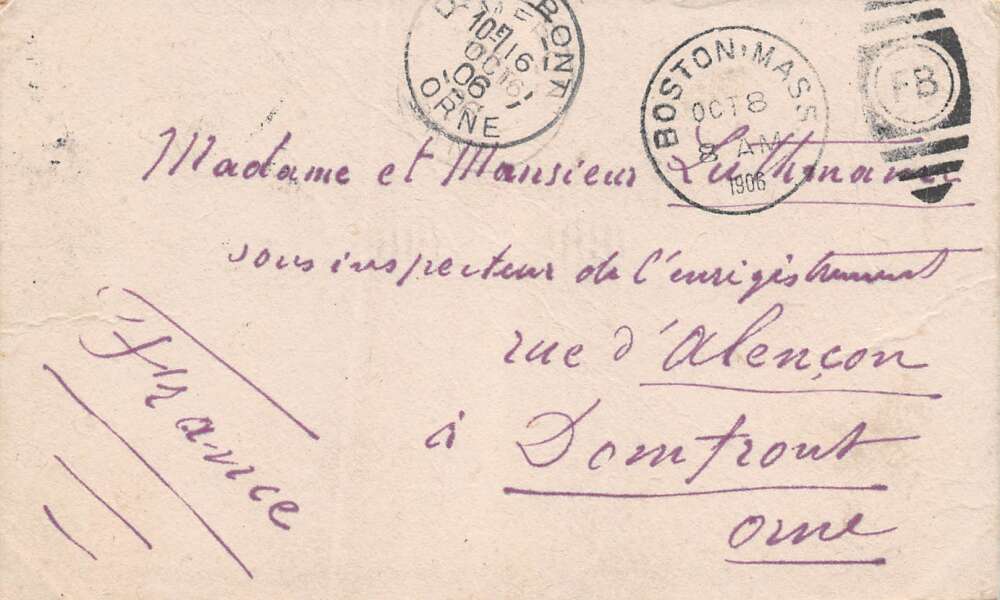 DOMFRONT
10-7 16
OCT 16
06
ORNE
BOSTON, MASS
OCT 8
8 AM
1906
FB
Madame et Monsieur Luthmann
sous inspecteur de l'enrigistrement
rue d'Alençon
à Domfront
Orne
France